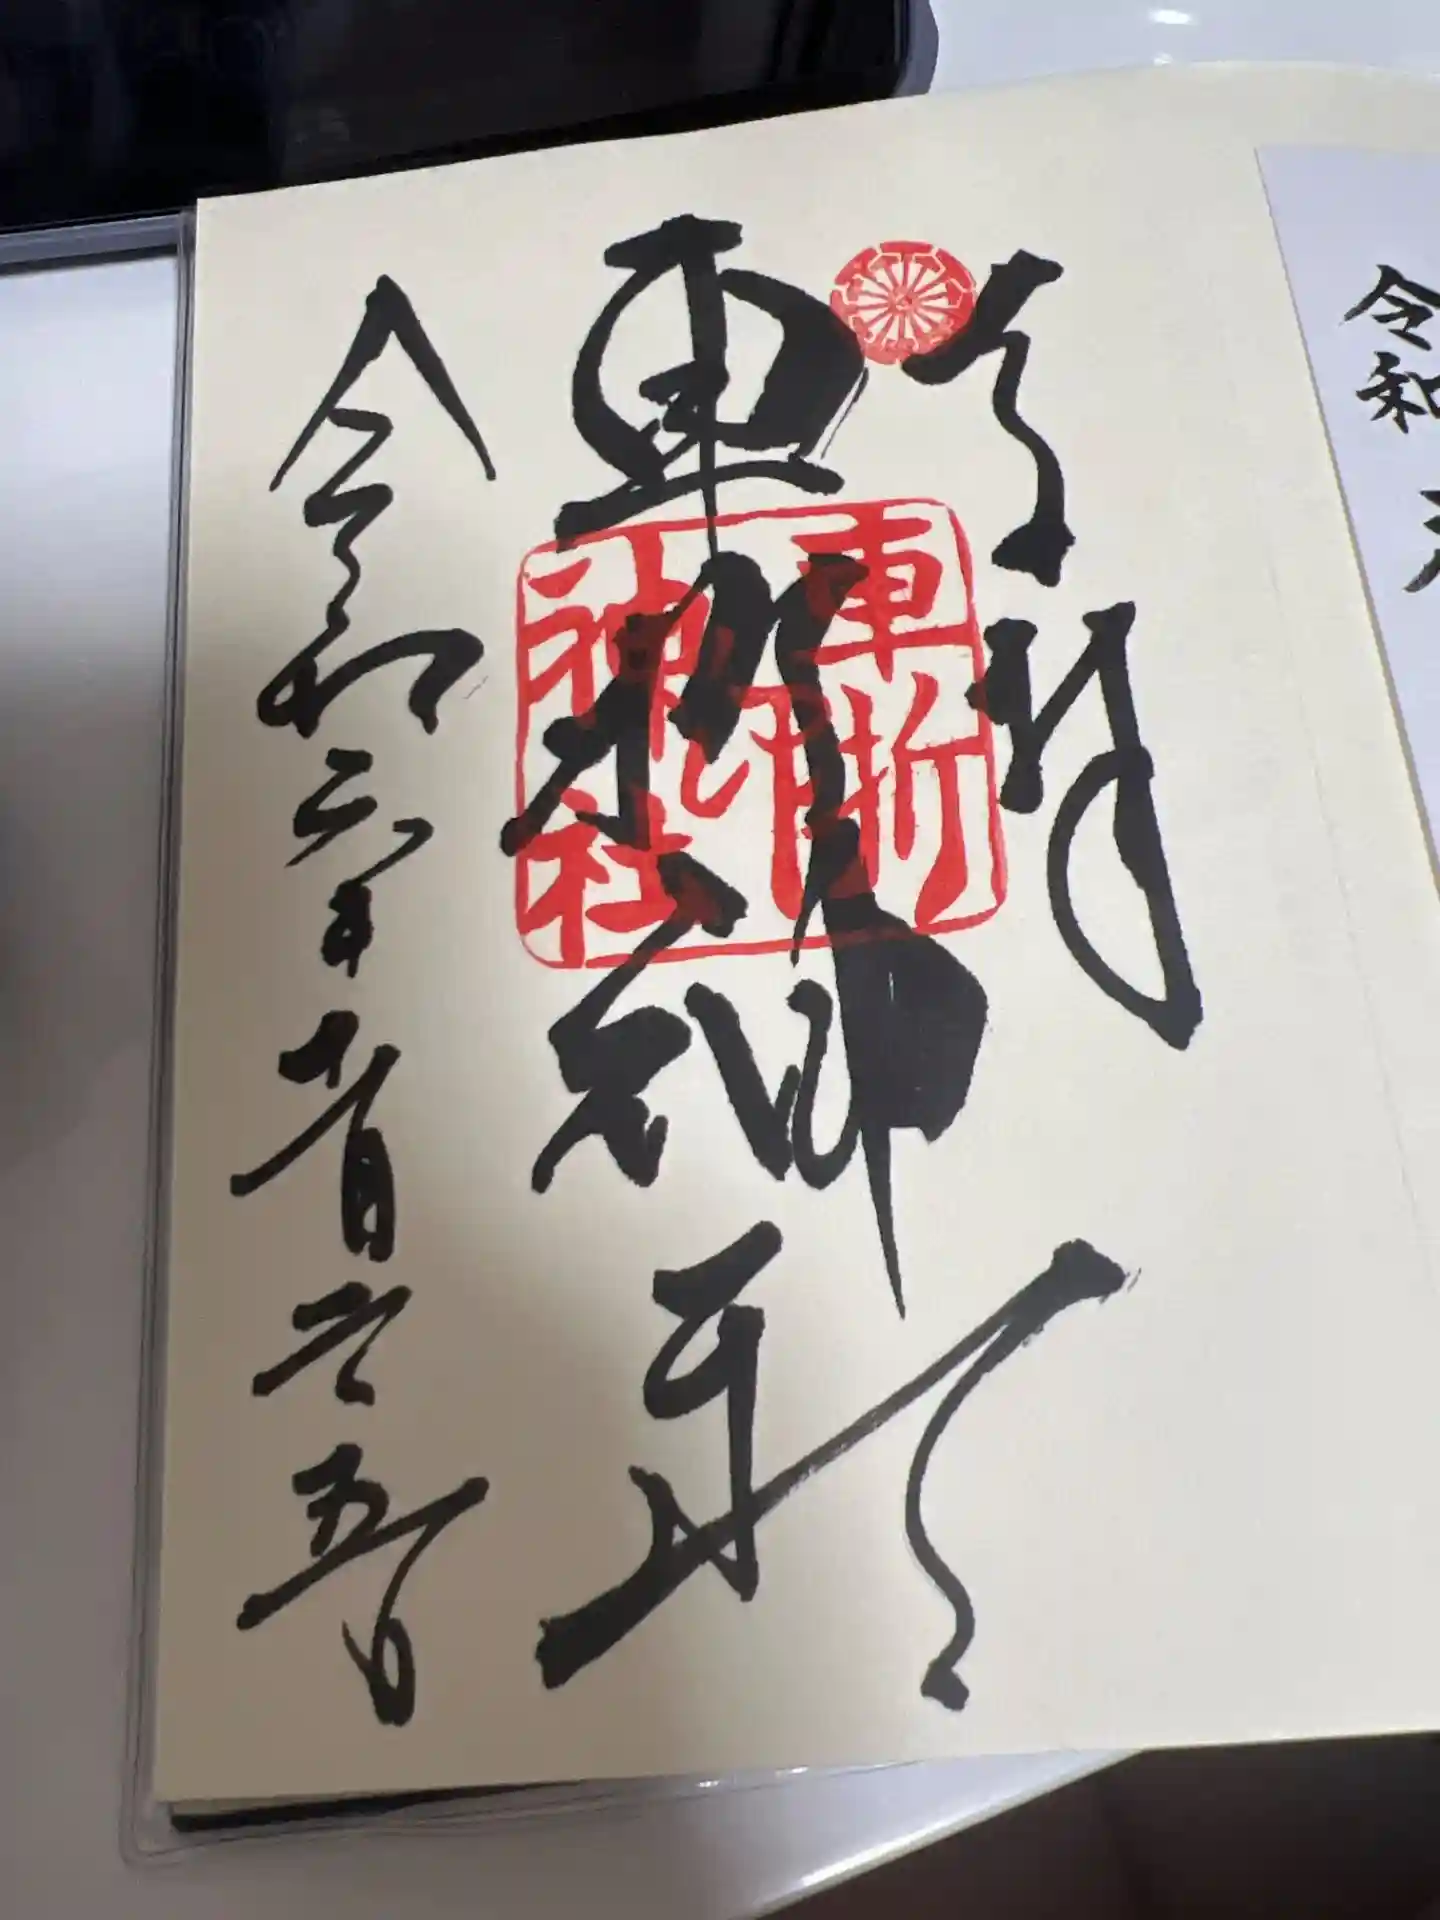 奉拝
車折神社
車折
印
神社
令和六年十月二十五日
令和